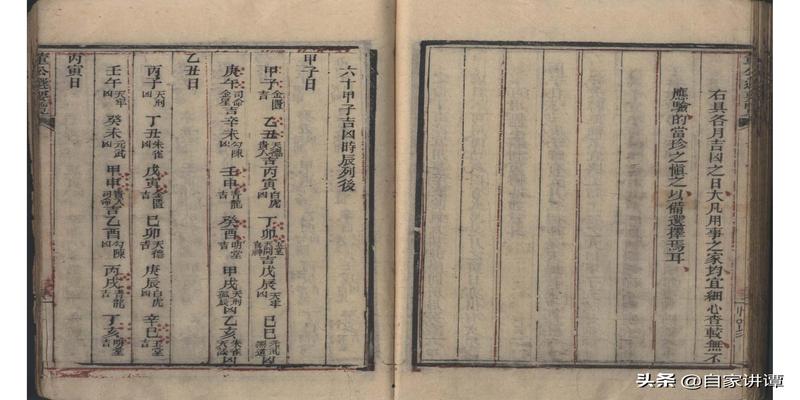 右具各月吉凶之日大凡用事之家均宜細心查載無不
應驗的當珍之慎之以備選擇焉耳
六十甲子吉凶時辰列後
甲子日
甲子金匱吉乙丑天德貴人吉丙寅白虎丁卯玉堂吉戊辰天牢己巳元武
庚午司命金星吉辛未勾陳凶壬申青龍吉癸酉明堂吉甲戌天刑孤辰凶乙亥朱雀天訟凶
乙丑日
丙子天刑凶丁丑朱雀凶戊寅金匱吉巳卯天德吉庚辰白虎凶辛巳玉堂吉
壬午天牢凶癸未元武凶甲申貴人司命吉乙酉勾陳凶丙戌青龍吉丁亥明堂吉
丙寅日
董公選
头条 @自家讲谭